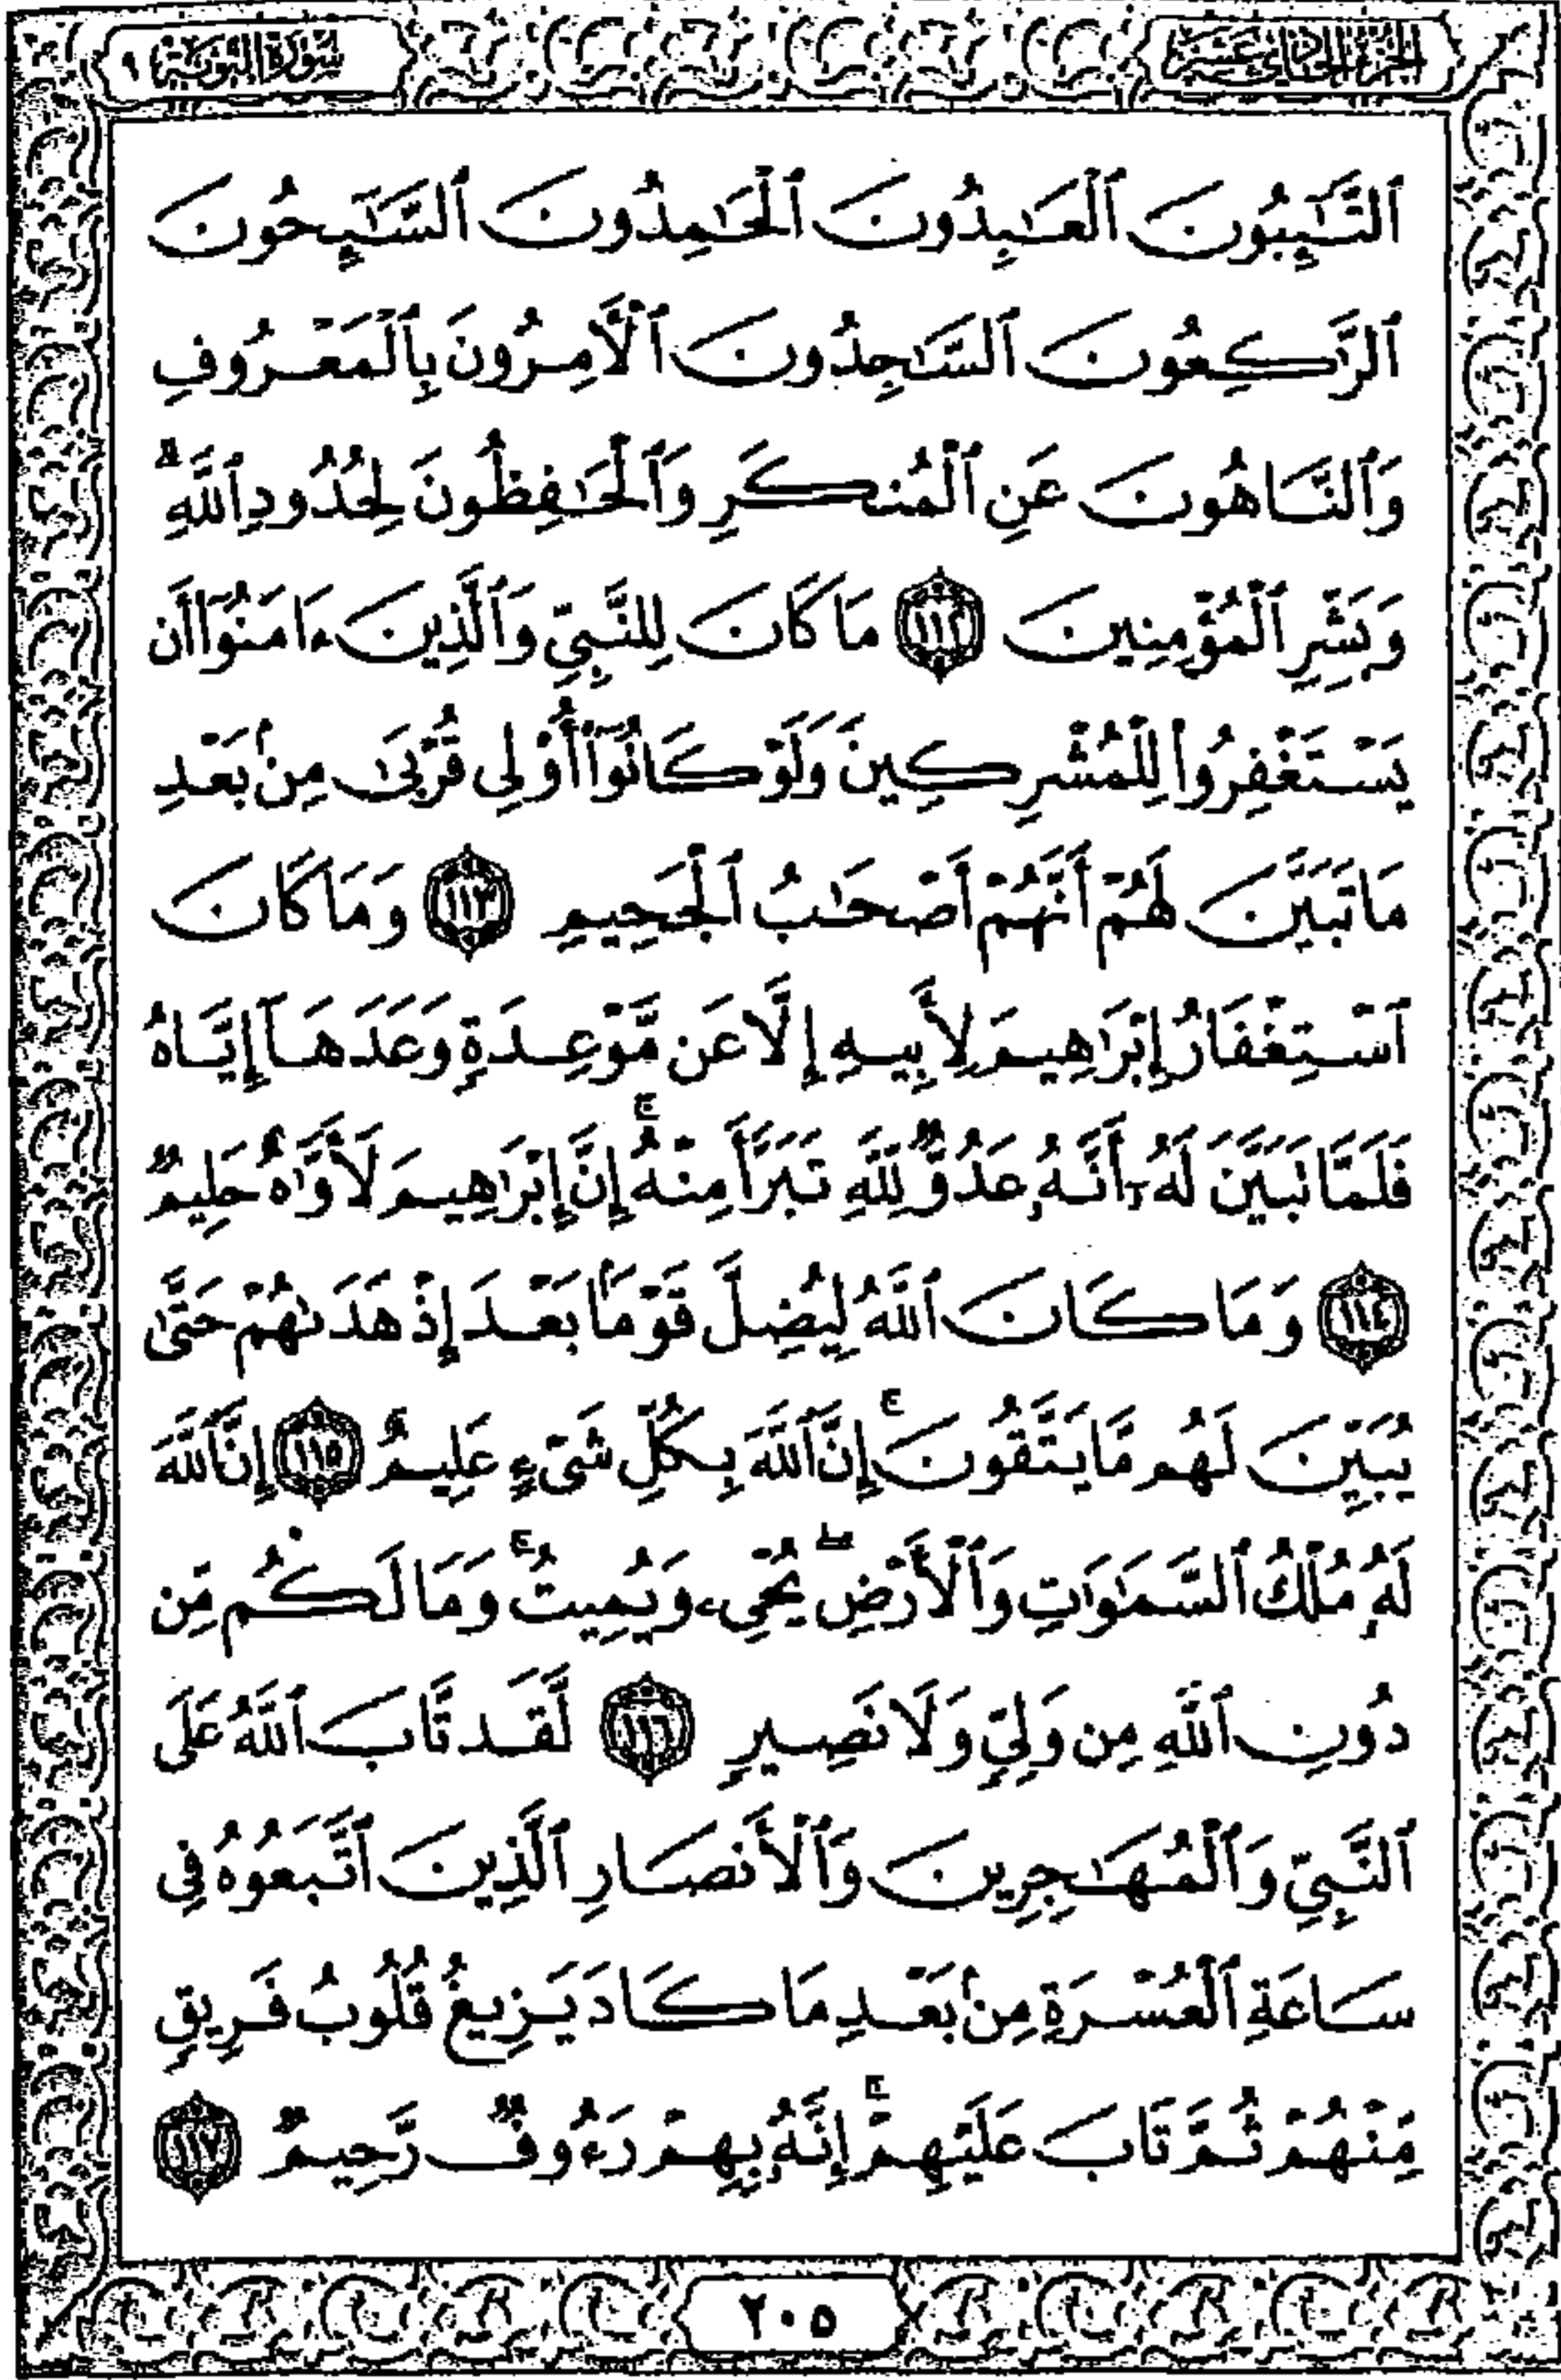 الجزء الحادي عشر
سورة التوبة ٩
ٱلتَّـٰٓئِبُونَ ٱلْعَـٰبِدُونَ ٱلْحَـٰمِدُونَ ٱلسَّـٰٓئِحُونَ
ٱلرَّٰكِعُونَ ٱلسَّـٰجِدُونَ ٱلْـَٔامِرُونَ بِٱلْمَعْرُوفِ
وَٱلنَّاهُونَ عَنِ ٱلْمُنكَرِ وَٱلْحَـٰفِظُونَ لِحُدُودِ ٱللَّهِ ۗ
وَبَشِّرِ ٱلْمُؤْمِنِينَ ١١٢ مَا كَانَ لِلنَّبِىِّ وَٱلَّذِينَ ءَامَنُوٓا۟ أَن
يَسْتَغْفِرُوا۟ لِلْمُشْرِكِينَ وَلَوْ كَانُوٓا۟ أُو۟لِى قُرْبَىٰ مِنۢ بَعْدِ
مَا تَبَيَّنَ لَهُمْ أَنَّهُمْ أَصْحَـٰبُ ٱلْجَحِيمِ ١١٣ وَمَا كَانَ
ٱسْتِغْفَارُ إِبْرَٰهِيمَ لِأَبِيهِ إِلَّا عَن مَّوْعِدَةٍ وَعَدَهَآ إِيَّاهُ
فَلَمَّا تَبَيَّنَ لَهُۥٓ أَنَّهُۥ عَدُوٌّ لِّلَّهِ تَبَرَّأَ مِنْهُ ۚ إِنَّ إِبْرَٰهِيمَ لَأَوَّٰهٌ حَلِيمٌ
١١٤ وَمَا كَانَ ٱللَّهُ لِيُضِلَّ قَوْمًۢا بَعْدَ إِذْ هَدَىٰهُمْ حَتَّىٰ
يُبَيِّنَ لَهُم مَّا يَتَّقُونَ ۚ إِنَّ ٱللَّهَ بِكُلِّ شَىْءٍ عَلِيمٌ ١١٥ إِنَّ ٱللَّهَ
لَهُۥ مُلْكُ ٱلسَّمَـٰوَٰتِ وَٱلْأَرْضِ ۖ يُحْىِۦ وَيُمِيتُ ۚ وَمَا لَكُم مِّن
دُونِ ٱللَّهِ مِن وَلِىٍّ وَلَا نَصِيرٍ ١١٦ لَّقَد تَّابَ ٱللَّهُ عَلَى
ٱلنَّبِىِّ وَٱلْمُهَـٰجِرِينَ وَٱلْأَنصَارِ ٱلَّذِينَ ٱتَّبَعُوهُ فِى
سَاعَةِ ٱلْعُسْرَةِ مِنۢ بَعْدِ مَا كَادَ يَزِيغُ قُلُوبُ فَرِيقٍ
مِّنْهُمْ ثُمَّ تَابَ عَلَيْهِمْ ۚ إِنَّهُۥ بِهِمْ رَءُوفٌ رَّحِيمٌ ١١٧
٢٠٥